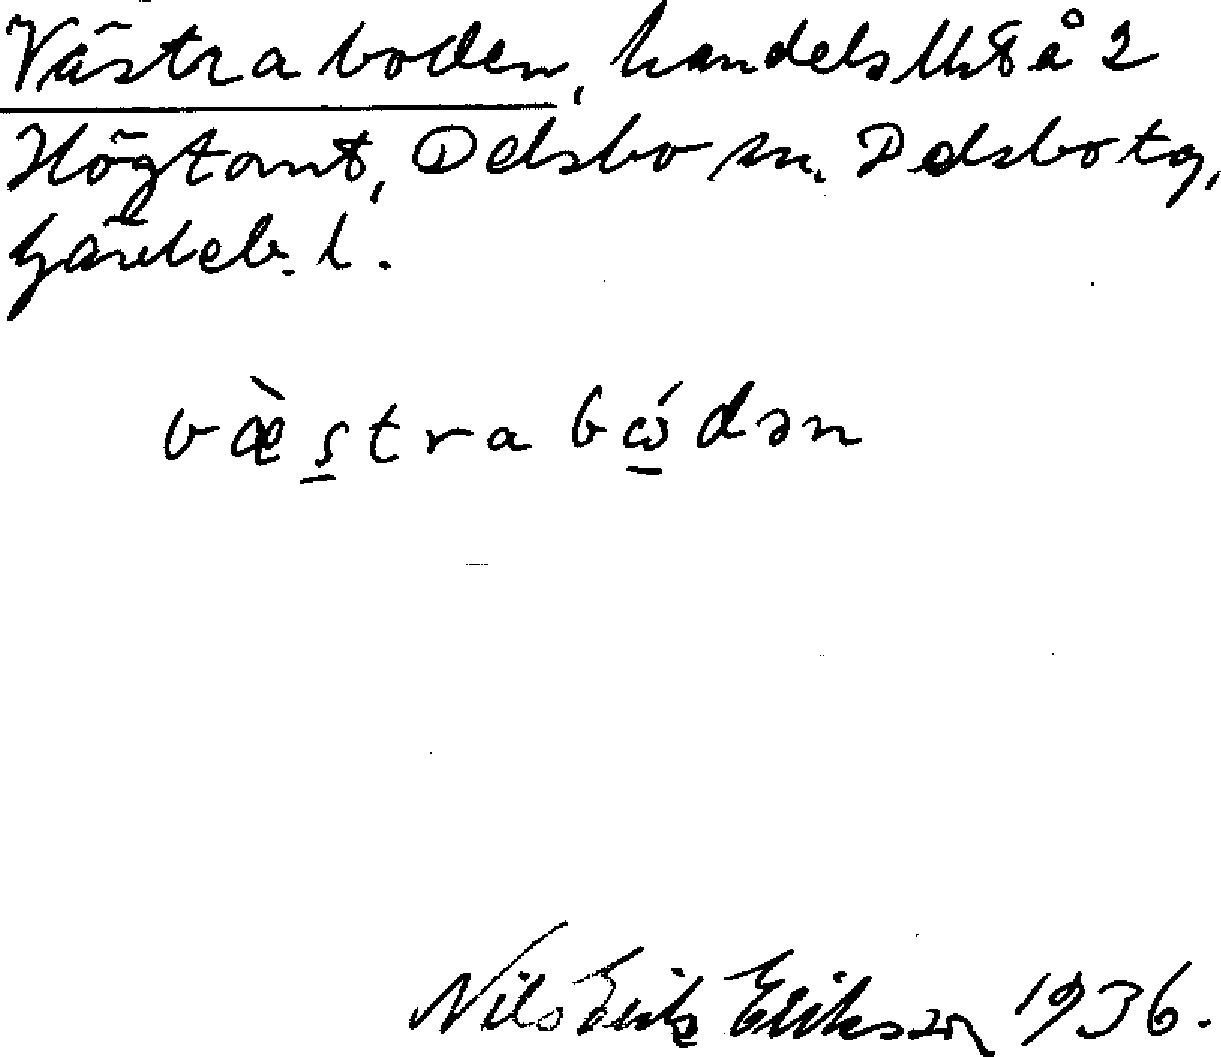 Västra boden, handelsbst å 2
Högtomt, Delsbo sn. Delsbo tg,
Gävleb. l.
væ̀s̠tra bώ̲dən
Nils Erik Eriksson 1936.